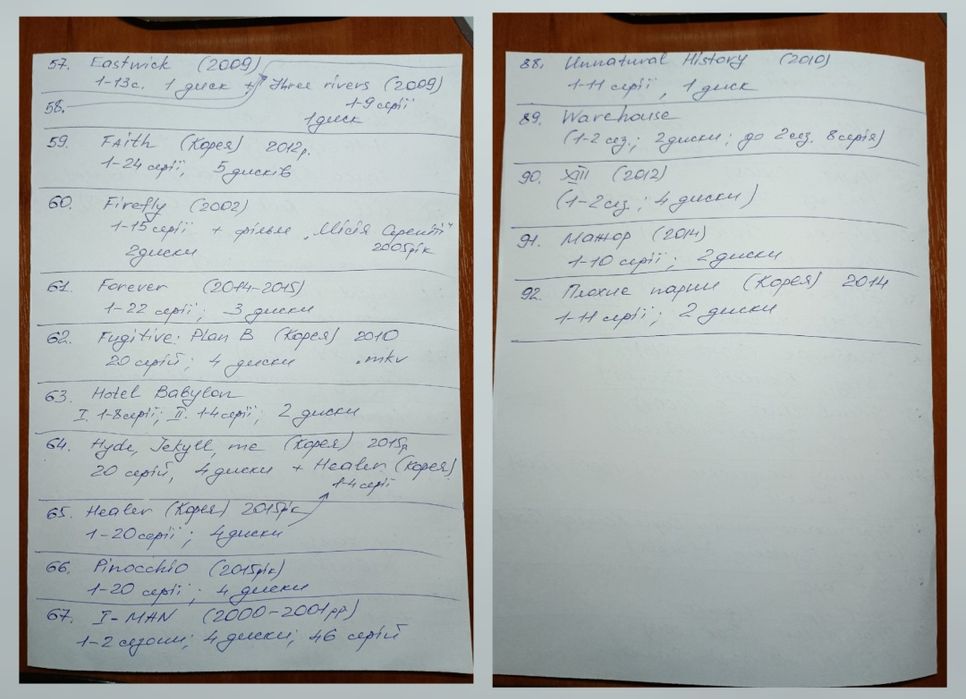 57. Eastwick (2009)
1-13с. 1 диск + Three rivers (2009)
58. 1-9 серії
1 диск
59. Faith (Корея) 2012р.
1-24 серії; 5 дисків
60. Firefly (2002)
1-15 серії + фільм „Місія Сереніті"
2 диски 2005рік
61. Forever (2014-2015)
1-22 серії; 3 диски
62. Fugitive: Plan B (Корея) 2010
20 серій; 4 диски .mkv
63. Hotel Babylon
I. 1-8 серії; II. 1-4 серії; 2 диски
64. Hyde, Jekyll, me (Корея) 2015р
20 серій, 4 диски + Healer (Корея)
1-4 серії
65. Healer (Корея) 2015рік
1-20 серії; 4 диски
66. Pinocchio (2015рік)
1-20 серії; 4 диски
67. I-MAN (2000-2001рр)
1-2 сезони; 4 диски; 46 серій
88. Unnatural History (2010)
1-11 серії, 1 диск
89. Warehouse
(1-2 сез; 2 диски; до 2 сез. 8 серія)
90. XIII (2012)
(1-2 сез; 4 диски)
91. Мажор (2014)
1-10 серії; 2 диски
92. Плохие парни (Корея) 2014
1-11 серії; 2 диски